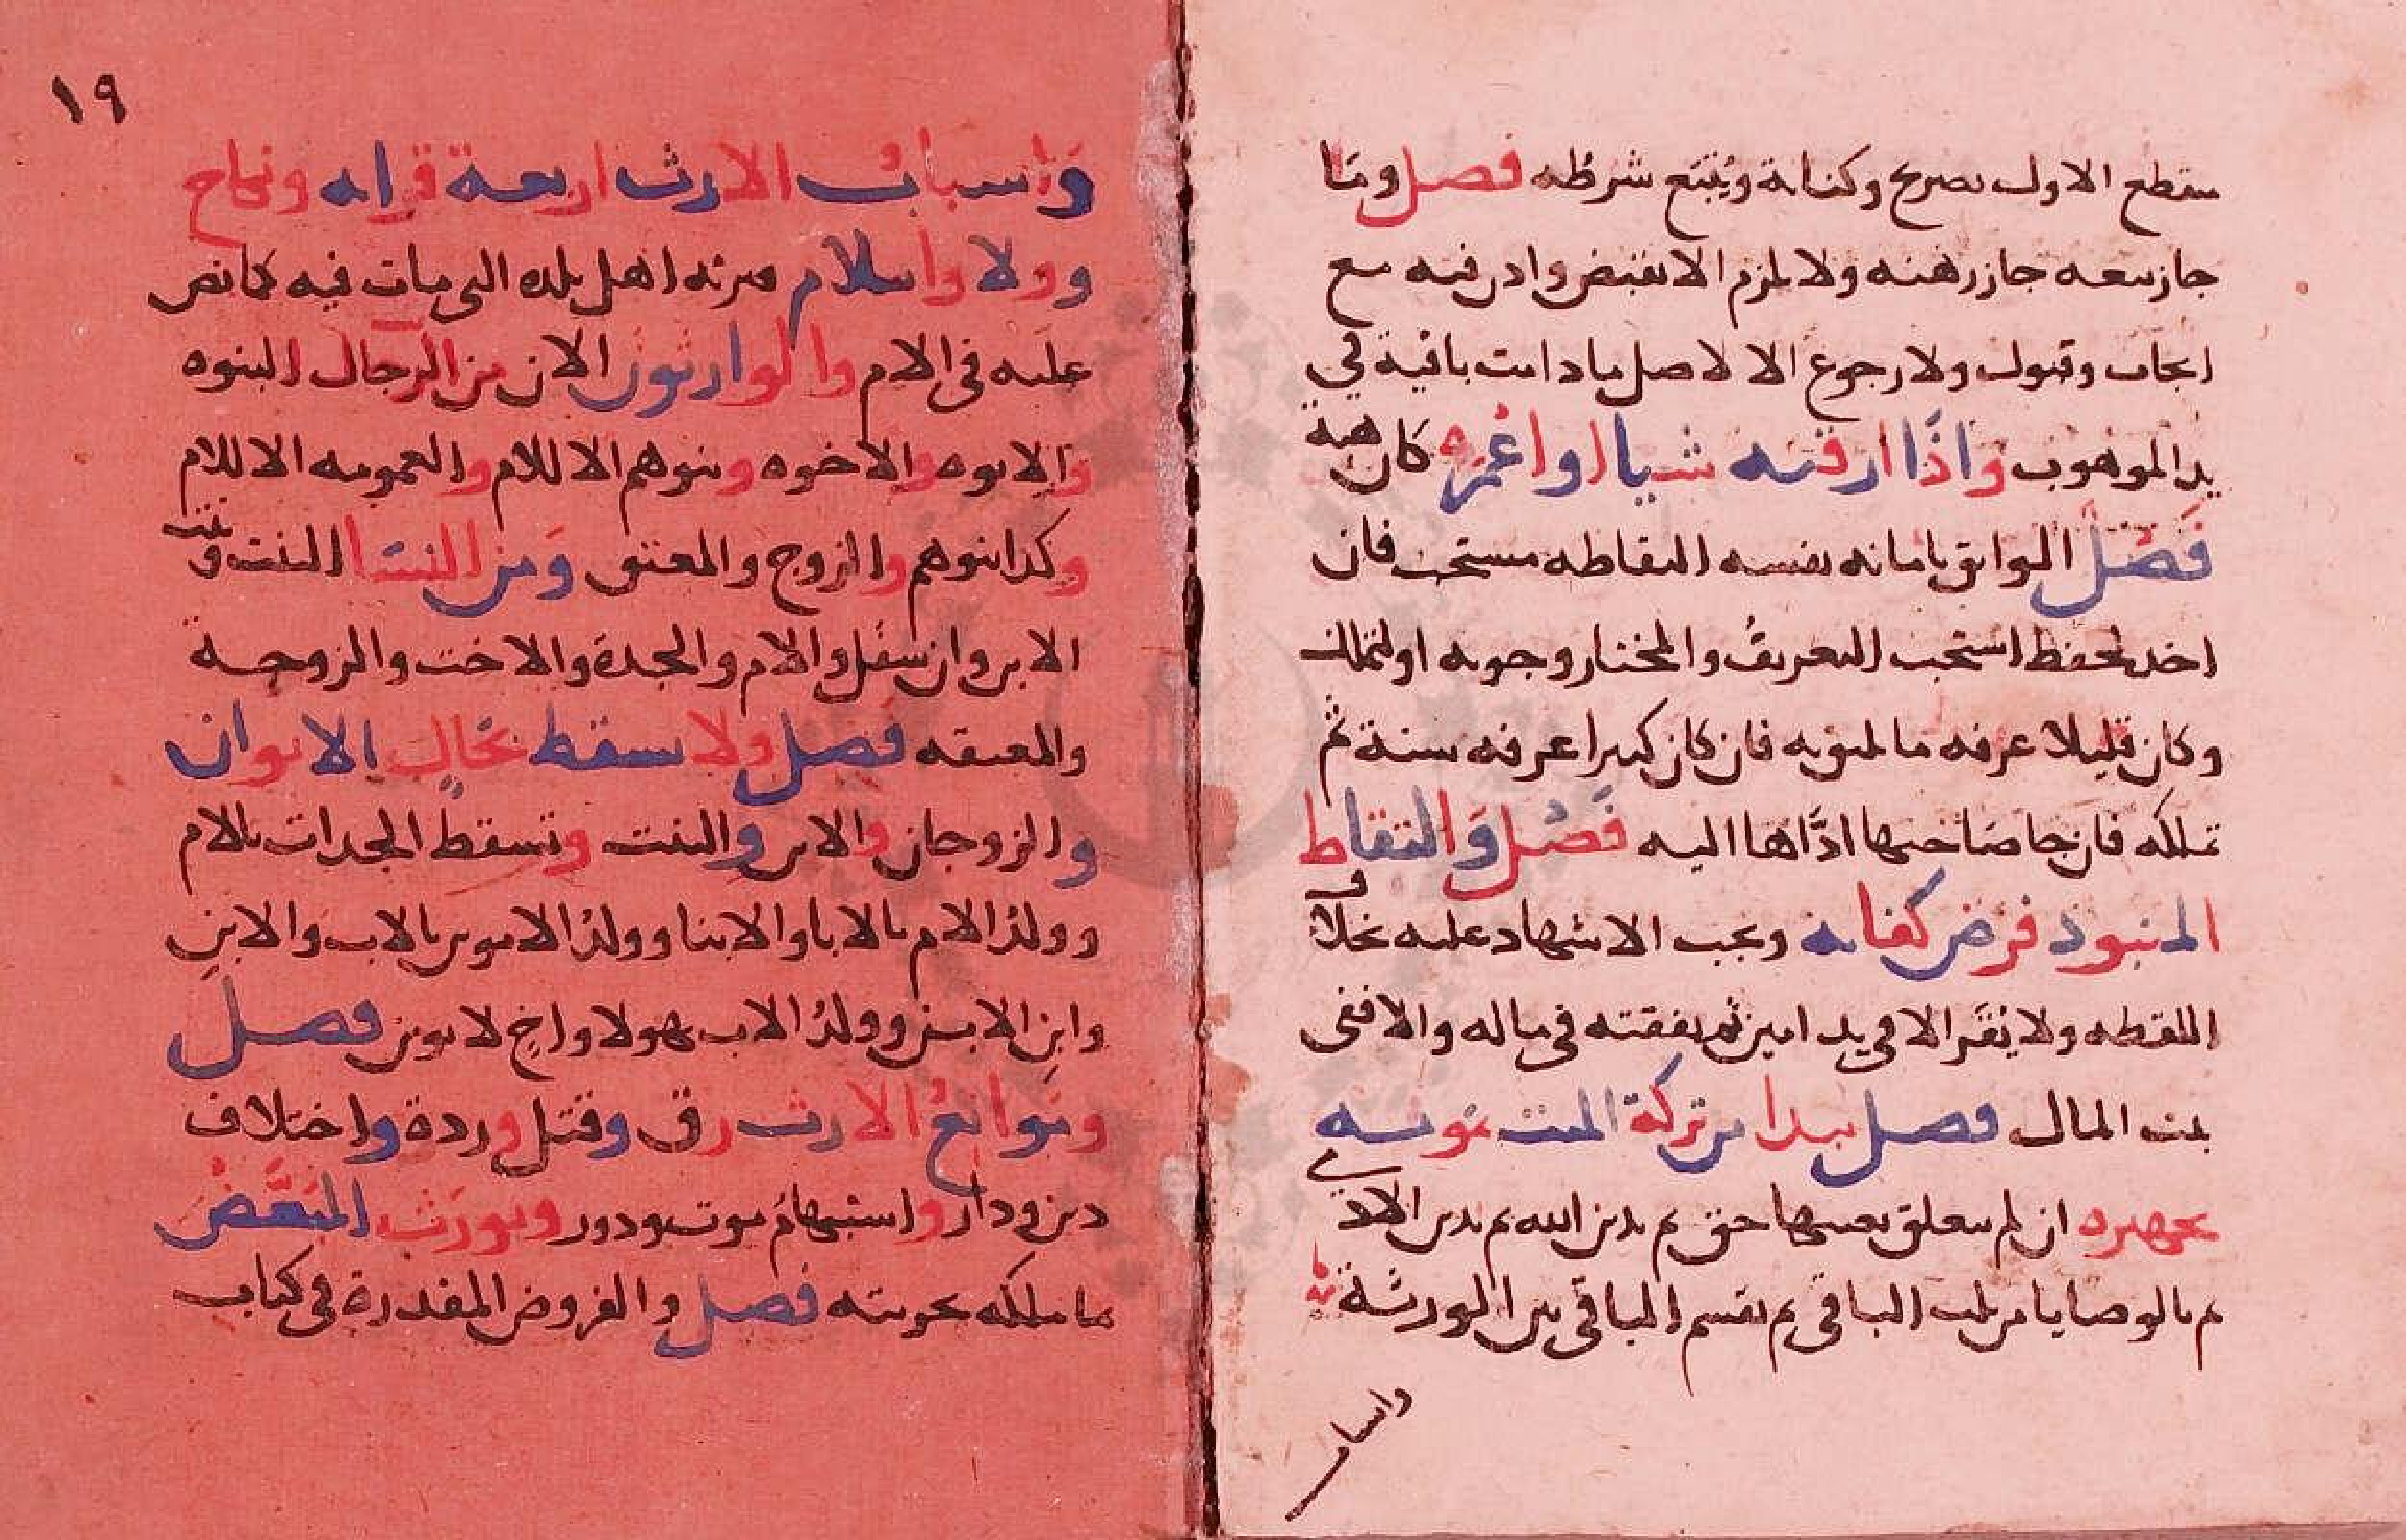 منقطع الاول بصريح وكناية ويتبع شرطه فصل وما
جاز بيعه جاز رهنه ولا يلزم الا بقبض واذن فيه مع
ايجاب وقبول ولا رجوع الا لاصل ما دامت باقية في
يد الموهوب واذا ارقبه شيا او اعمره كان هبة
فصل الواثق بامانه نفسه التقاطه مستحب فان
اخذ لحفظ استحب التعريف والمختار وجوبه او لتملك
وكان قليلا عرفه ما يليق به فان كان كثيرا عرفه سنة ثم
تملكه فان جا صاحبها اداها اليه فصل والتقاط
المنبوذ فرض كفايه ويجب الاشهاد عليه بخلاف
اللقطه ولا يقر الا في يد امين ثم نفقته في ماله والا ففي
بيت المال فصل يبدا من تركة الميت بمونة
تجهيزه ان لم يتعلق بعينها حق ثم بدين الله ثم بدين الادمي
ثم بالوصايا من ثلث الباقي ثم يقسم الباقي بين الورثة
واسباب
١٩
واسباب الارث اربعة قرابه ونكاح
وولا واسلام فيرثه اهل بلده التي مات فيه كما نص
عليه في الام والوارثون الان من الرجال البنوه
والابوه والاخوه وبنوهم الا للام والعمومه الا للام
وكذا بنوهم والزوج والمعتق ومن النسا البنت وبنت
الابن وان سفل والام والجدة والاخت والزوجة
والمعتقه فصل ولا يسقط بحال الابوان
والزوجان والابن والبنت وتسقط الجدات بالام
وولد الام بالابا والابنا وولد الابوين بالاب والابن
وابن الابن وولد الاب بهولا واخ لابوين فصل
وموانع الارث رق وقتل وردة واختلاف
دين ودار واستبهام موت ودور ويورث المبعض
ما ملكه بحريته فصل والفروض المقدرة في كتاب